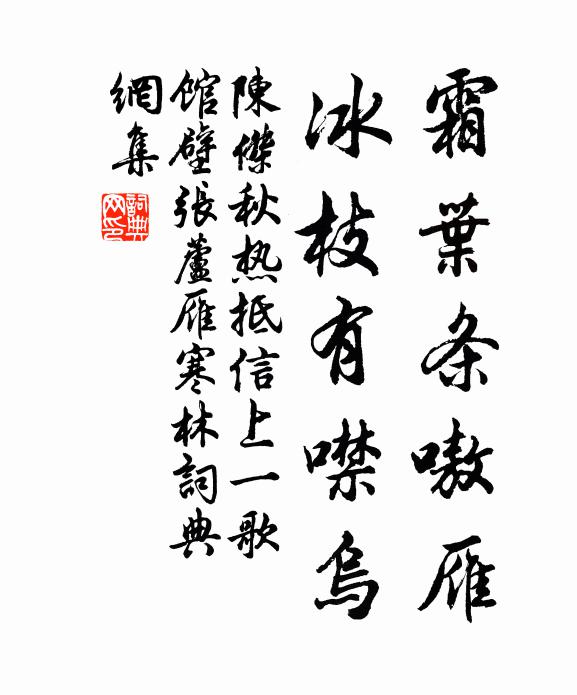 霜葉条嗷雁
冰枝有噤烏
陳傑秋热抵信上一歌
館壁張蘆雁寒林詞典
網集
詞典網印